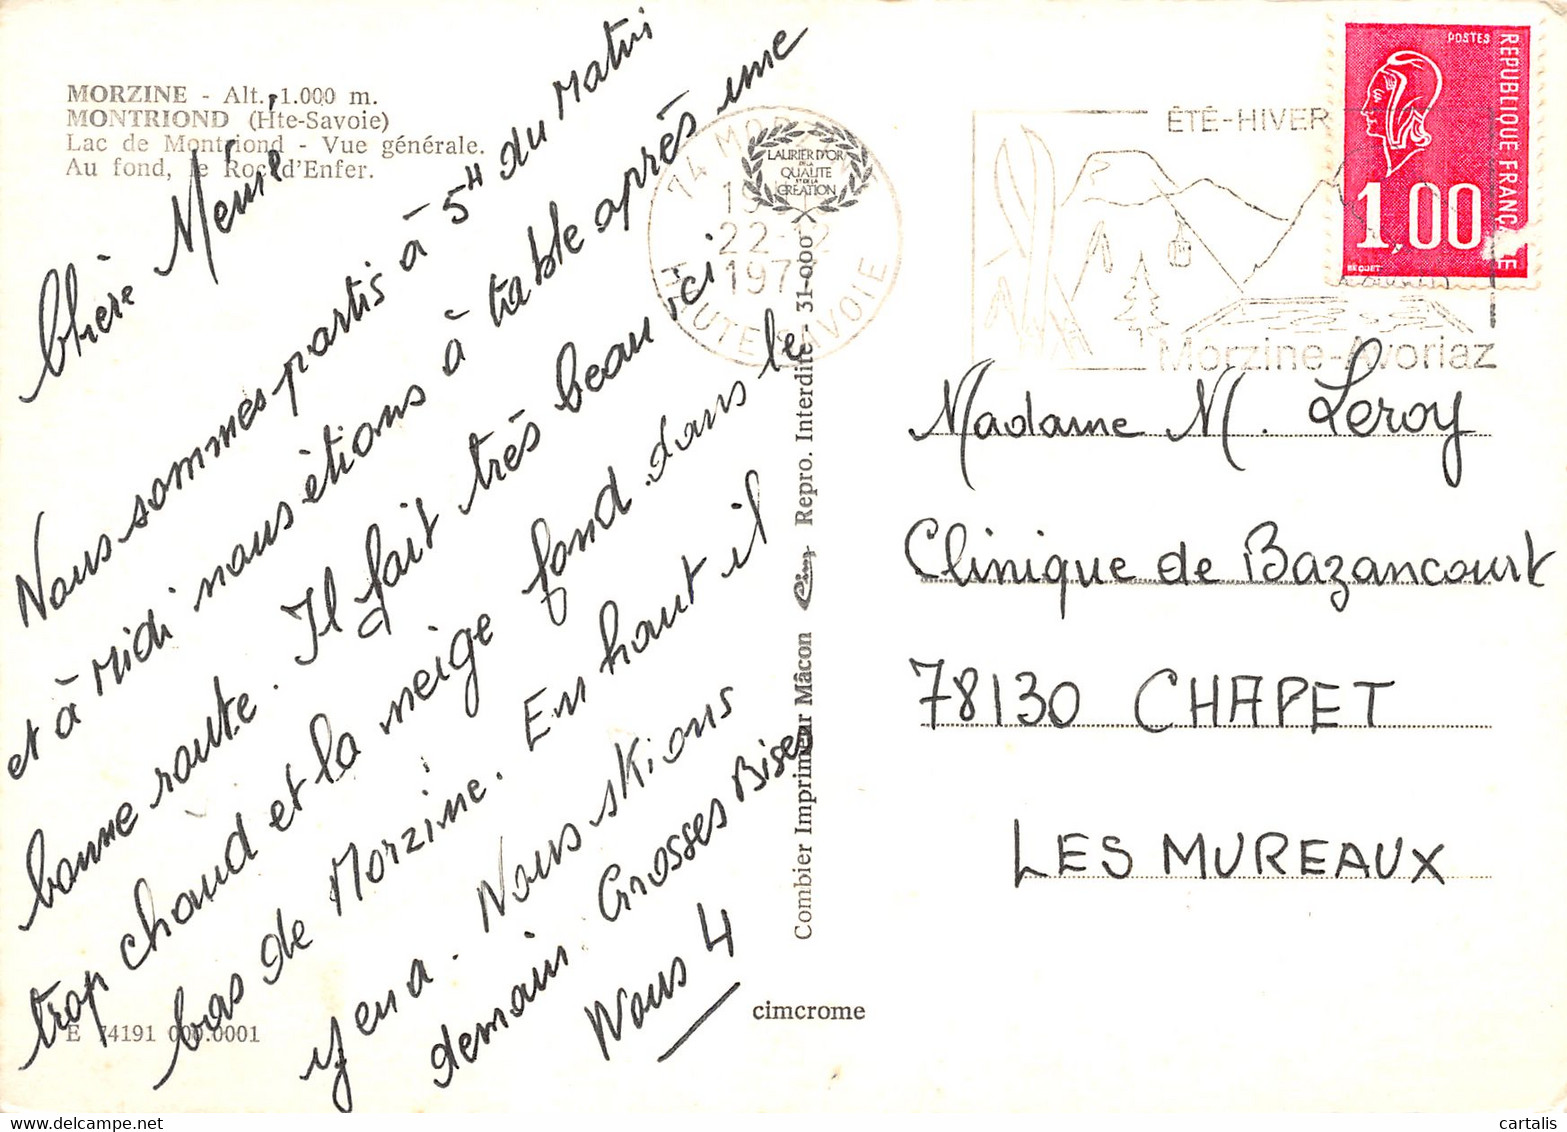 MORZINE - Alt. 1.000 m.
MONTRIOND (Hte-Savoie)
Lac de Montriond - Vue générale.
Au fond, le Roc d'Enfer.
Chère Mémé
Nous sommes partis à 5H du matin
et à midi nous étions à table après une
bonne route. Il fait très beau ici
trop chaud et la neige fond dans le
bas de Morzine. En haut il
y en a. Nous skions
demain. Grosses Bises
Nous 4
E 74191 000.0001
cimcrome
Combier Imprimeur Mâcon Cim Repro. Interdite - 31-000
LAURIER D'OR
DE LA
QUALITE
ET DE LA
CREATION
74 MORZINE
22-12
197
HAUTE SAVOIE
ÉTÉ-HIVER
Morzine-Avoriaz
POSTES
REPUBLIQUE FRANÇAISE
1,00
BEQUET
Madame M. Leroy
Clinique de Bazancourt
78130 CHAPET
LES MUREAUX
cartalis